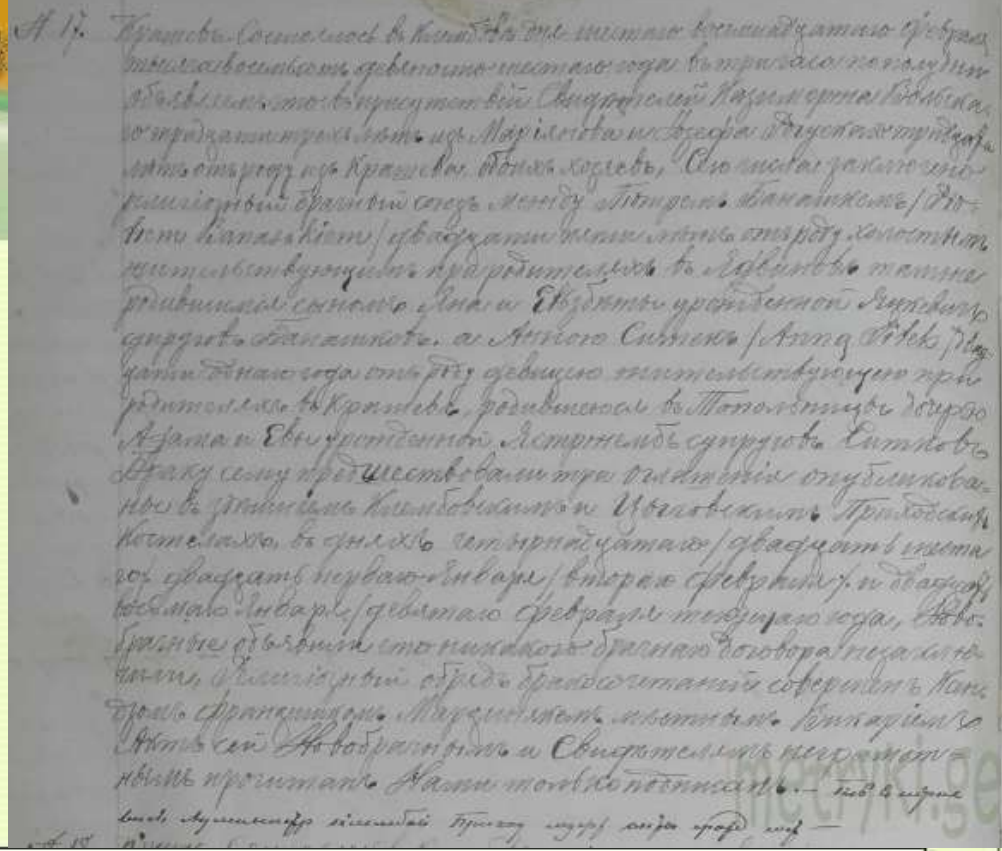 № 17. Крашевъ. Состоялось въ Клембовѣ дня шестаго восемнадцатаго Февраля
тысяча восемьсотъ девяносто шестаго года въ три часа по полудни
объявляемъ, что въ присутствіи Свидѣтелей Казимержа Вольска-
го тридцати трехъ лѣтъ изъ Маріянова и Юзефа тридцати
лѣтъ отъ роду изъ Крашева обоихъ хозяевъ, Сего числа заключено
религіозный брачный союзъ между Петромъ Банашкомъ /Pio-
trem Banaszkiem/ двадцати пяти лѣтъ отъ роду холостымъ
жительствующимъ при родителяхъ въ Ядвиновѣ тамже
родившимся сыномъ Яна и Елзбеты урожденной
супруговъ Банашковъ. а Анною Ситекъ /Anną Sitek/ двад-
цати однаго года отъ роду девицею жительствующею при
родителяхъ въ Крашевѣ, родившеюся въ дочерью
Адама и Евы урожденной Ястржембъ супруговъ Ситковъ
Браку сему предшествовали три оглашенія опубликова-
ные въ здѣшнемъ Клембовскимъ и Приходскихъ
Костелахъ въ дняхъ четырнадцатаго /двадцать шеста
го/ двадцать перваго Января /втораго Февраля/ и двадцать
восьмаго Января /девятаго Февраля текущаго года, Ново-
брачные объявили что никакого брачнаго договора незаклю-
чили, Религіозный обрядъ бракосочетаній совершенъ Ксен-
дзомъ Францишкомъ мѣстнымъ Викаріемъ
Актъ сей Новобрачнымъ и Свидѣтелямъ неграмот-
нымъ прочитанъ Нами только подписанъ. —
metryki.ge
№ 18